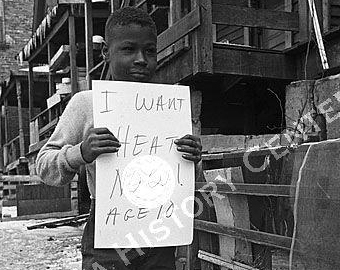 I WANT
HEAT
AGE 10
A HISTORY CENTER